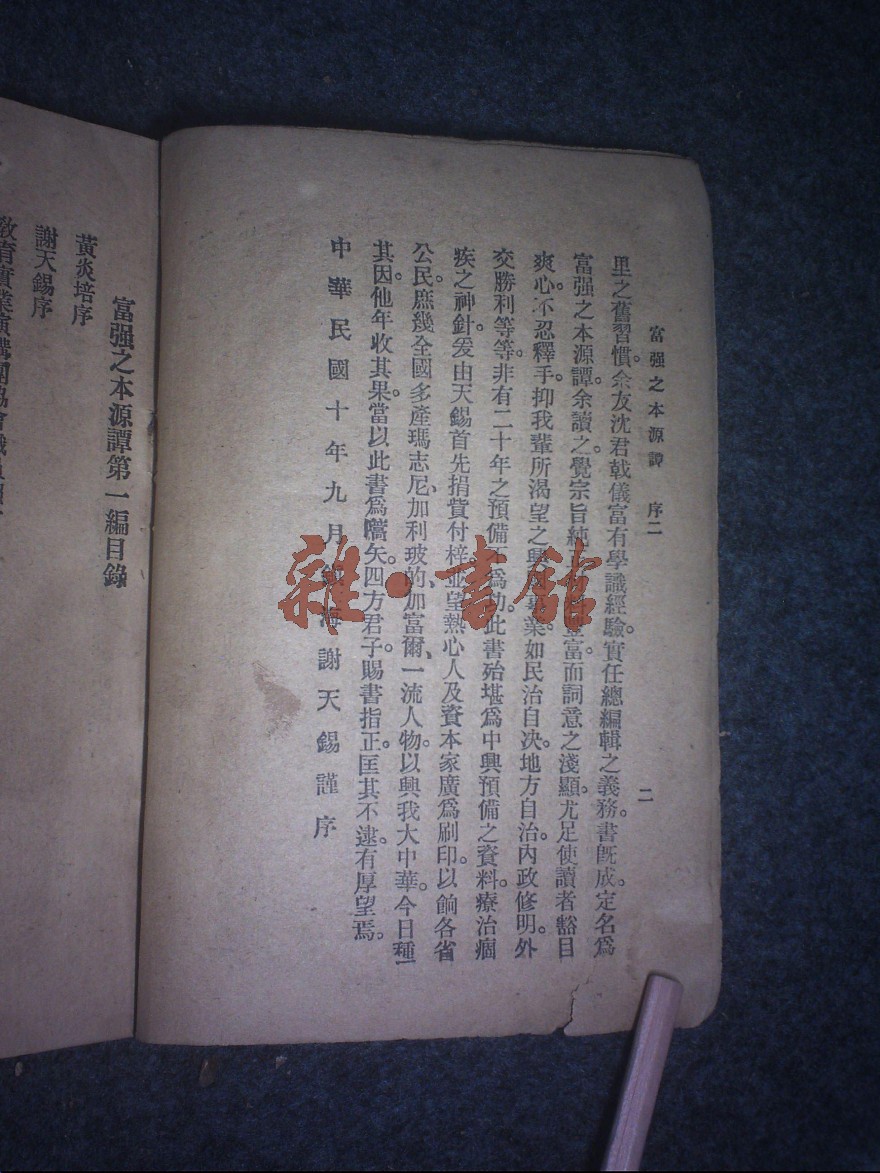 富强之本源譚　序二
二
里之舊習慣。余友沈君戟儀富有學識經驗。實任總編輯之義務。書旣成。定名爲
富强之本源譚。余讀之。覺宗旨純豐富。而詞意之淺顯。尤足使讀者豁目
爽心。不忍釋手。抑我輩所渴望之興業。如民治自決。地方自治。內政修明。外
交勝利等等。非有二十年之預備不爲功。此書殆堪爲中興預備之資料。療治痼
疾之神針。爰由天錫首先捐貲付梓。並望熱心人及資本家廣爲刷印。以餉各省
公民。庶幾全國多產瑪志尼、加利玻的、加富爾、一流人物。以興我大中華。今日種
其因。他年收其果。當以此書爲嚆矢。四方君子。賜書指正。匡其不逮。有厚望焉。
中華民國十年九月海謝天錫謹序
富强之本源譚第一編目錄
黃炎培序
謝天錫序
敎育實業演講團協會
雜·書館